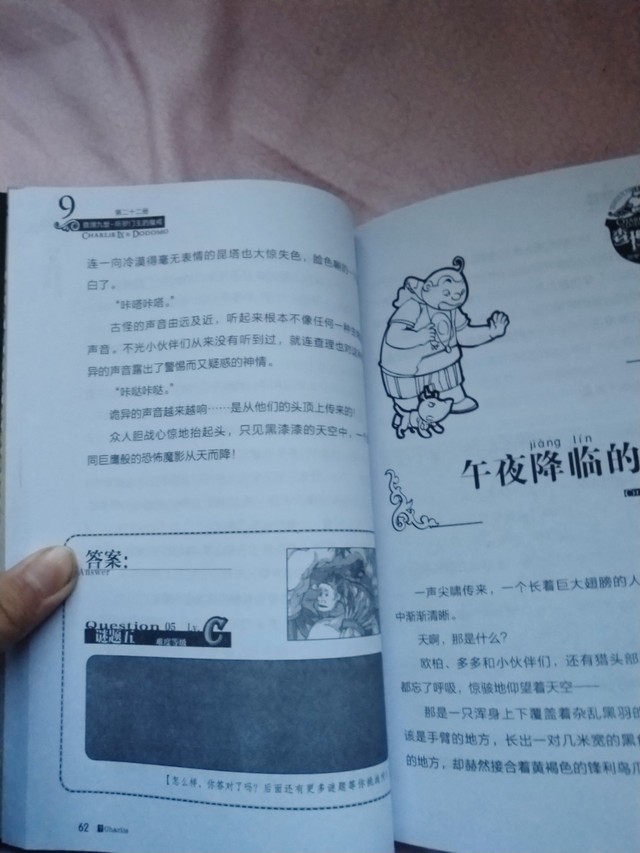 9
第二十二册
查理九世·所罗门王的魔戒
CHARLIE IX & DODOMO
连一向冷漠得毫无表情的昆塔也大惊失色，脸色
白了。
“咔嗒咔嗒。”
古怪的声音由远及近，听起来根本不像任何一种
声音。不光小伙伴们从来没有听到过，就连查理也对
异的声音露出了警惕而又疑惑的神情。
“咔哒咔哒。”
诡异的声音越来越响……是从他们的头顶上传来的！
众人胆战心惊地抬起头，只见黑漆漆的天空中，一
同巨鹰般的恐怖魔影从天而降！
答案：
Answer
Question 05 Lv.
谜题五
难度等级
C
【怎么样，你答对了吗？后面还有更多谜题等你挑
62
Charlie
jiàng lín
午夜降临的
一声尖啸传来，一个长着巨大翅膀的人
中渐渐清晰。
天啊，那是什么？
欧柏、多多和小伙伴们，还有猎头部
都忘了呼吸，惊骇地仰望着天空——
那是一只浑身上下覆盖着杂乱黑羽的
该是手臂的地方，长出一对几米宽的黑色
的地方，却赫然接合着黄褐色的锋利鸟爪